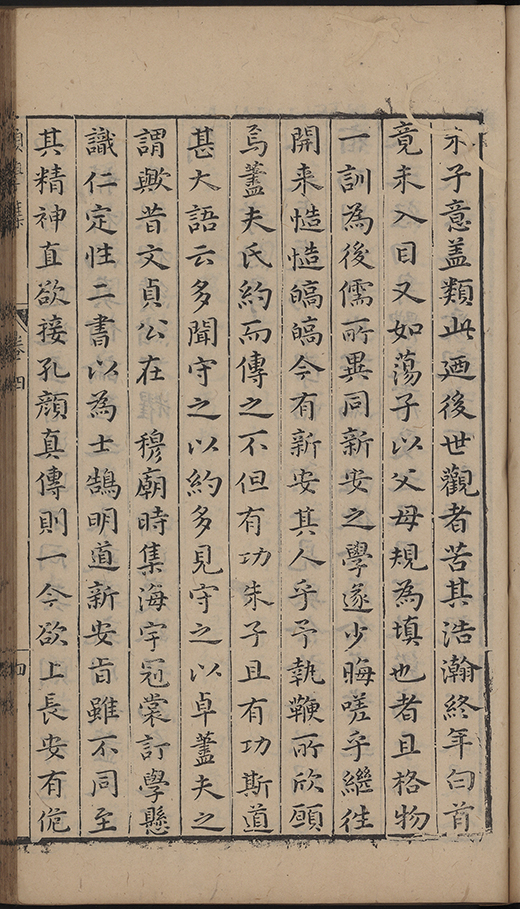 朱子意盖類此廼後世觀者苦其浩瀚終年白首
竟未入目又如蕩子以父母規為填也者且格物
一訓為後儒所異同新安之學遂少晦嗟乎繼徃
開来慥慥皜皜今有新安其人乎予執鞭所欣願
焉藎夫氏約而傳之不但有功朱子且有功斯道
甚大語云多聞守之以約多見守之以卓藎夫之
謂歟昔文貞公在 穆廟時集海宇冠裳訂學懸
識仁定性二書以為士鵠明道新安㫖雖不同至
其精神直欲接孔顔真傳則一今欲上長安有俛
卷四
四